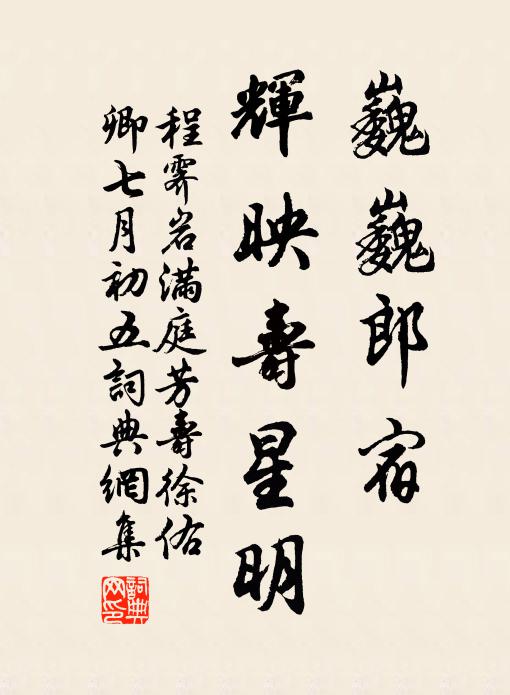 巍巍郎宿
輝映壽星明
程霽岩滿庭芳壽徐佑
卿七月初五詞典網集
詞典网印